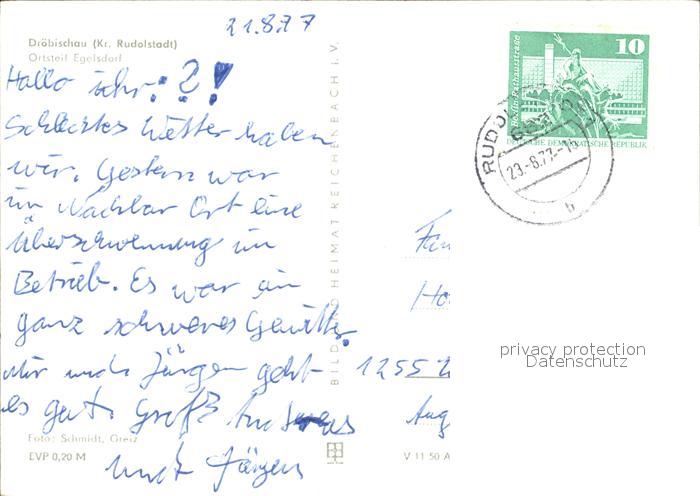 21.8.77
Dröbischau (Kr. Rudolstadt)
Ortsteil Egelsdorf
Hallo ihr: ?!
Schlechtes Wetter haben
wir. Gestern war
im Nachbar Ort eine
Überschwemmung im
Betrieb. Es war ein
ganz schweres Gewitter.
Mir und Jürgen geht
es gut. Gruß Andreas
und Jürgen
Foto: Schmidt, Greiz
EVP 0,20 M
BILD UND HEIMAT REICHENBACH i. V.
V 11 50 A
10
Berlin, Rathausstraße
DEUTSCHE DEMOKRATISCHE REPUBLIK
RUDOL
23.-8.77.-16
b
Fam
Ho
1255
Aug
privacy protection
Datenschutz